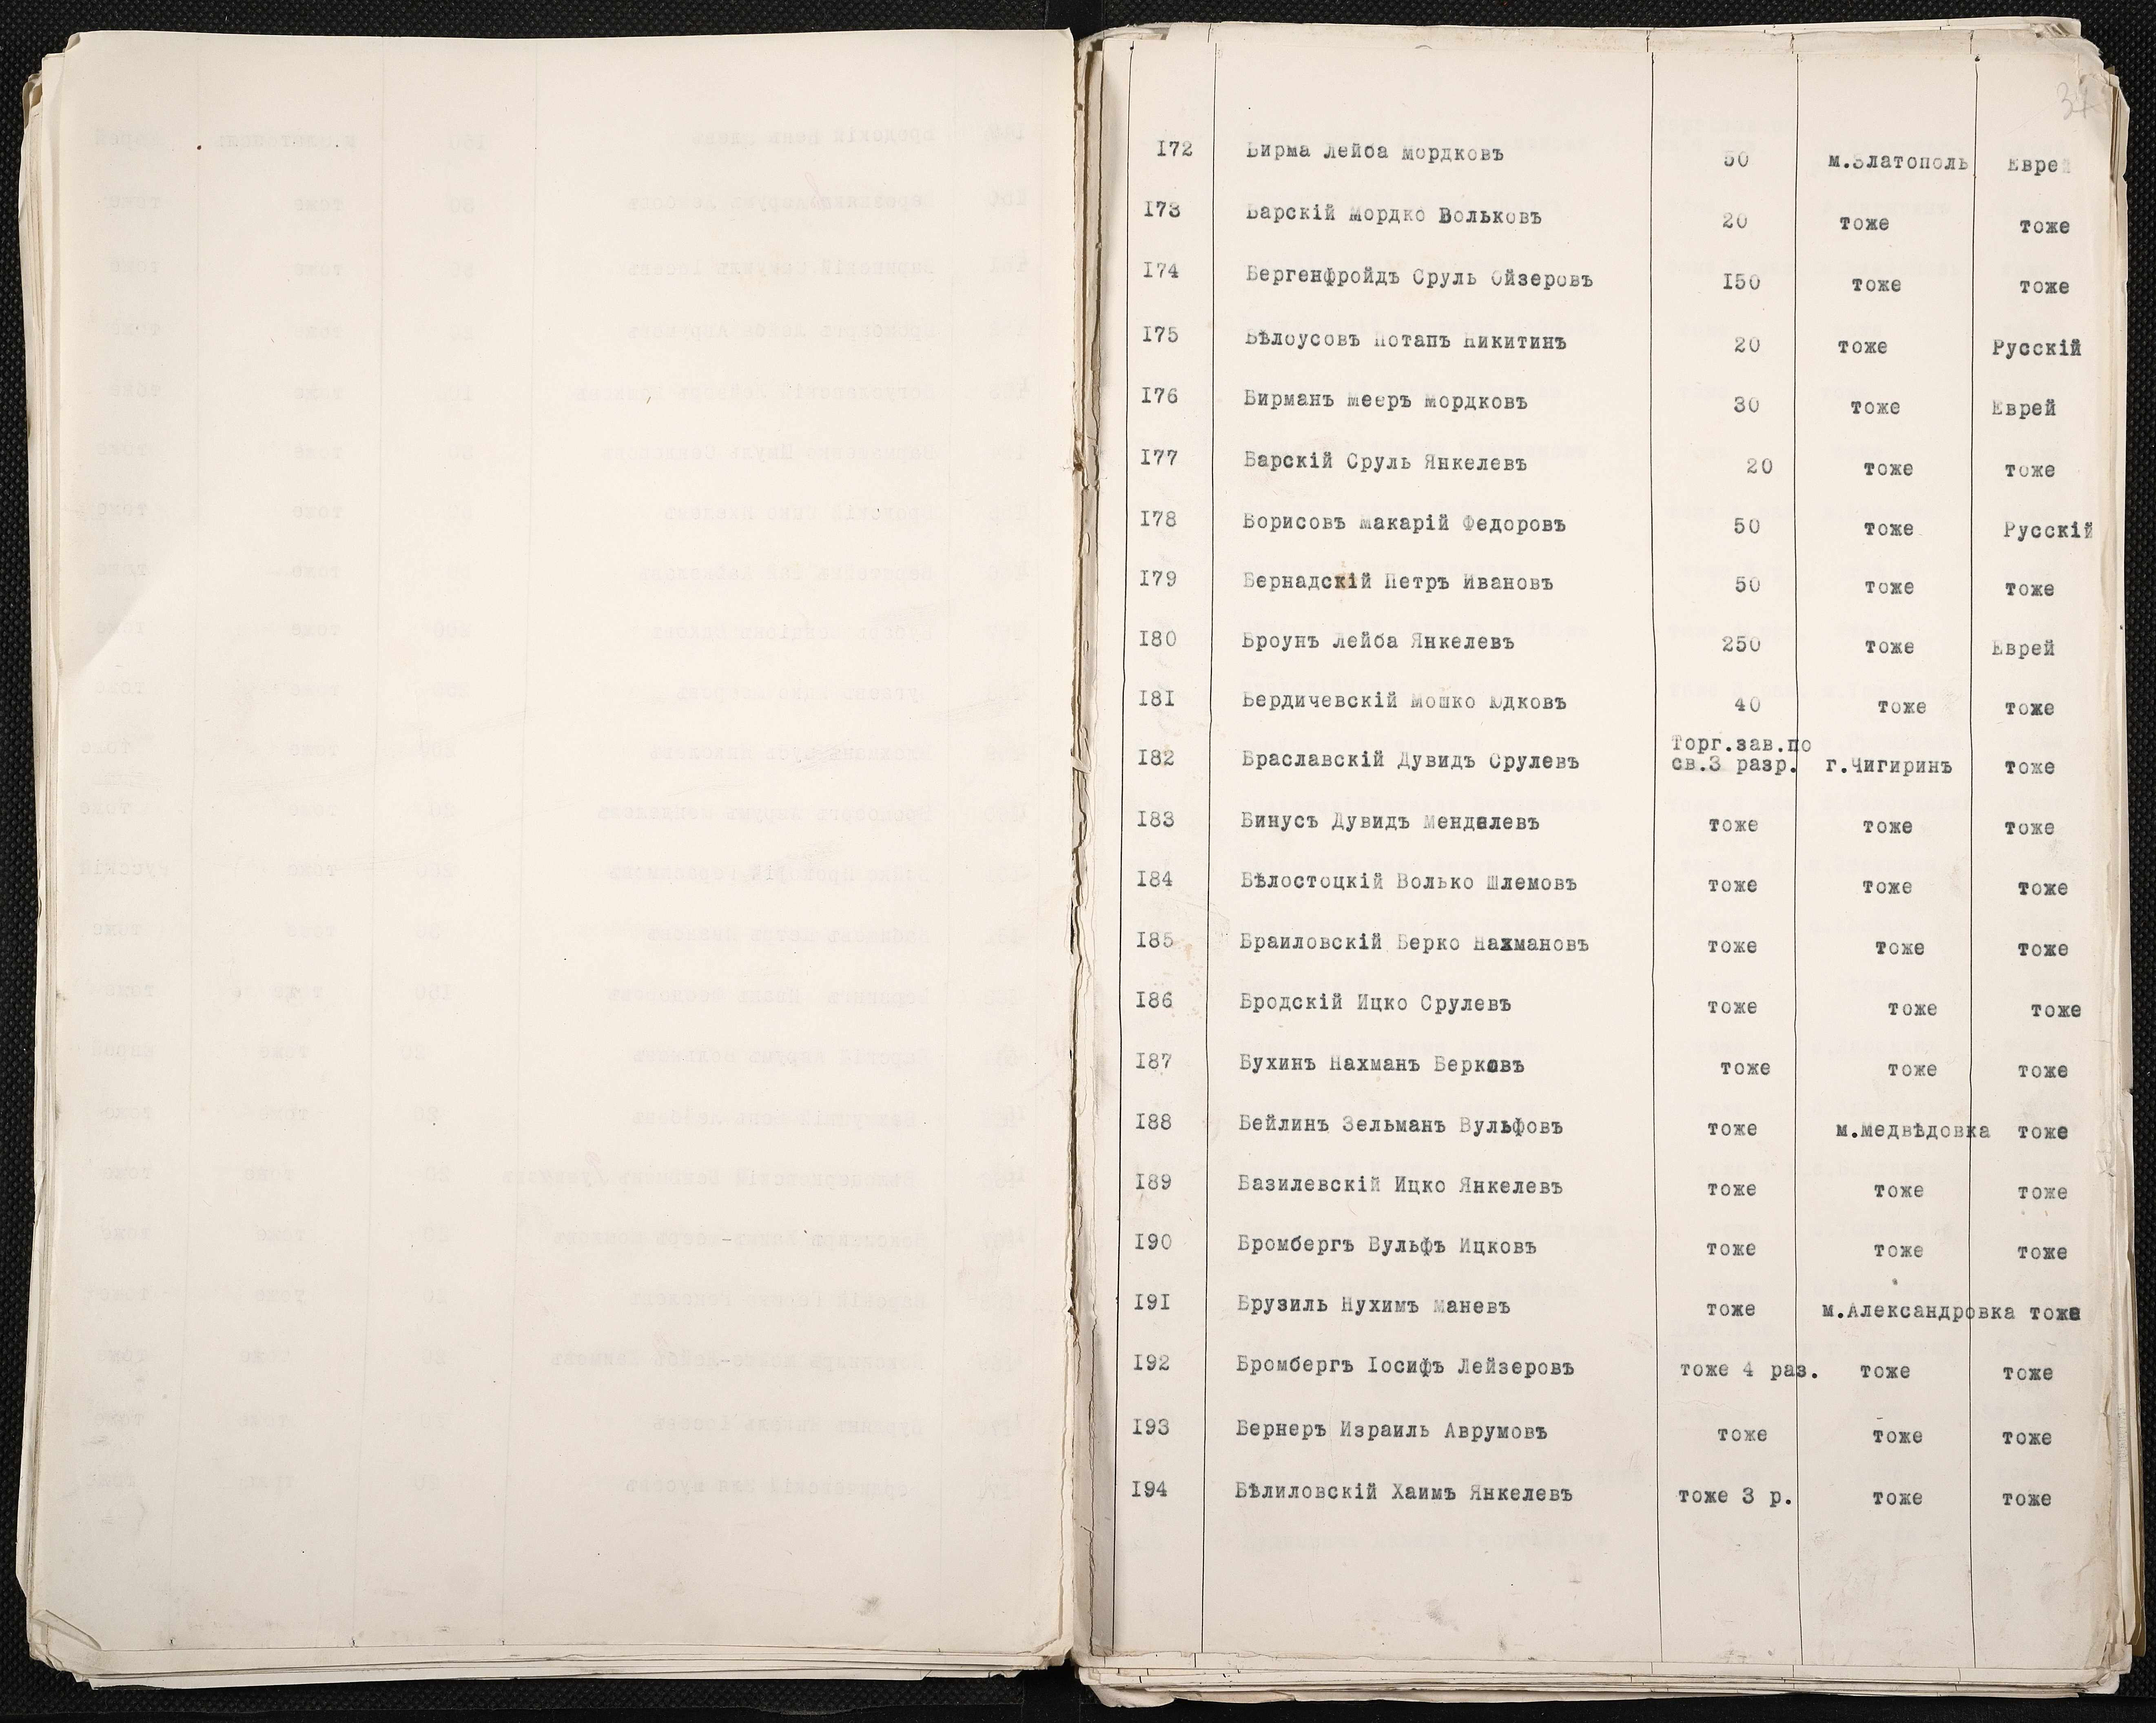 34
172 Бирма Лейба Мордковъ 50 м.Златополь Еврей
173 Барскій Мордко Вольковъ 20 тоже тоже
174 Бергенфройдъ Сруль Ойзеровъ 150 тоже тоже
175 Бѣлоусовъ Потапъ Никитинъ 20 тоже Русскій
176 Бирманъ Мееръ Мордковъ 30 тоже Еврей
177 Барскій Сруль Янкелевъ 20 тоже тоже
178 Борисовъ Макарій Федоровъ 50 тоже Русскій
179 Бернадскій Петръ Ивановъ 50 тоже тоже
180 Броунъ Лейба Янкелевъ 250 тоже Еврей
181 Бердичевскій Мошко Юдковъ 40 тоже тоже
Торг.зав.по
182 Браславскій Дувидъ Срулевъ св.3 разр. г.Чигиринъ тоже
183 Бинусъ Дувидъ Менделевъ тоже тоже тоже
184 Бѣлостоцкій Волько Шлемовъ тоже тоже тоже
185 Браиловскій Берко Нахмановъ тоже тоже тоже
186 Бродскій Ицко Срулевъ тоже тоже тоже
187 Бухинъ Нахманъ Берковъ тоже тоже тоже
188 Бейлинъ Зельманъ Вульфовъ тоже м.Медвѣдовка тоже
189 Базилевскій Ицко Янкелевъ тоже тоже тоже
190 Бромбергъ Вульфъ Ицковъ тоже тоже тоже
191 Брузиль Нухимъ Маневъ тоже м.Александровка тоже
192 Бромбергъ Іосифъ Лейзеровъ тоже 4 раз. тоже тоже
193 Бернеръ Израиль Аврумовъ тоже тоже тоже
194 Бѣлиловскій Хаимъ Янкелевъ тоже 3 р. тоже тоже